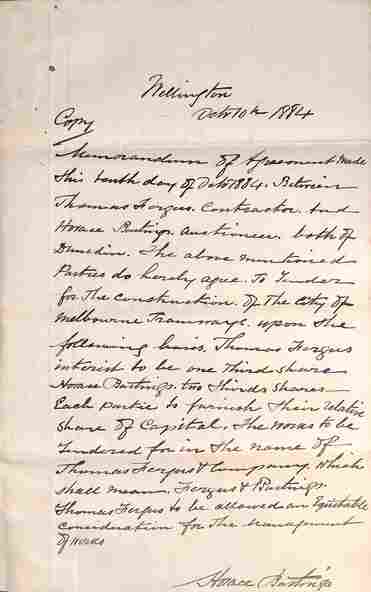 Wellington
Octr 10th 1884
Copy
Memorandum of Agreement Made
This tenth day of Octr 1884. Between
Thomas Fergus. Contractor. And
Horace Bastings Auctioneer. both of
Dunedin. The above mentioned
Parties do hereby agree. To Tender
for The Construction of The City of
Melbourne Tramways. upon The
following basis. Thomas Fergus
interest to be one Third share
Horace Bastings. two Thirds shares
Each partie to furnish Their relative
share of Capital. The works to be
Tendered for in The name of
Thomas Fergus & Company. Which
shall mean Fergus & Bastings.
Thomas Fergus to be allowed an Equitable
consideration for The Management
of works
Horace Bastings